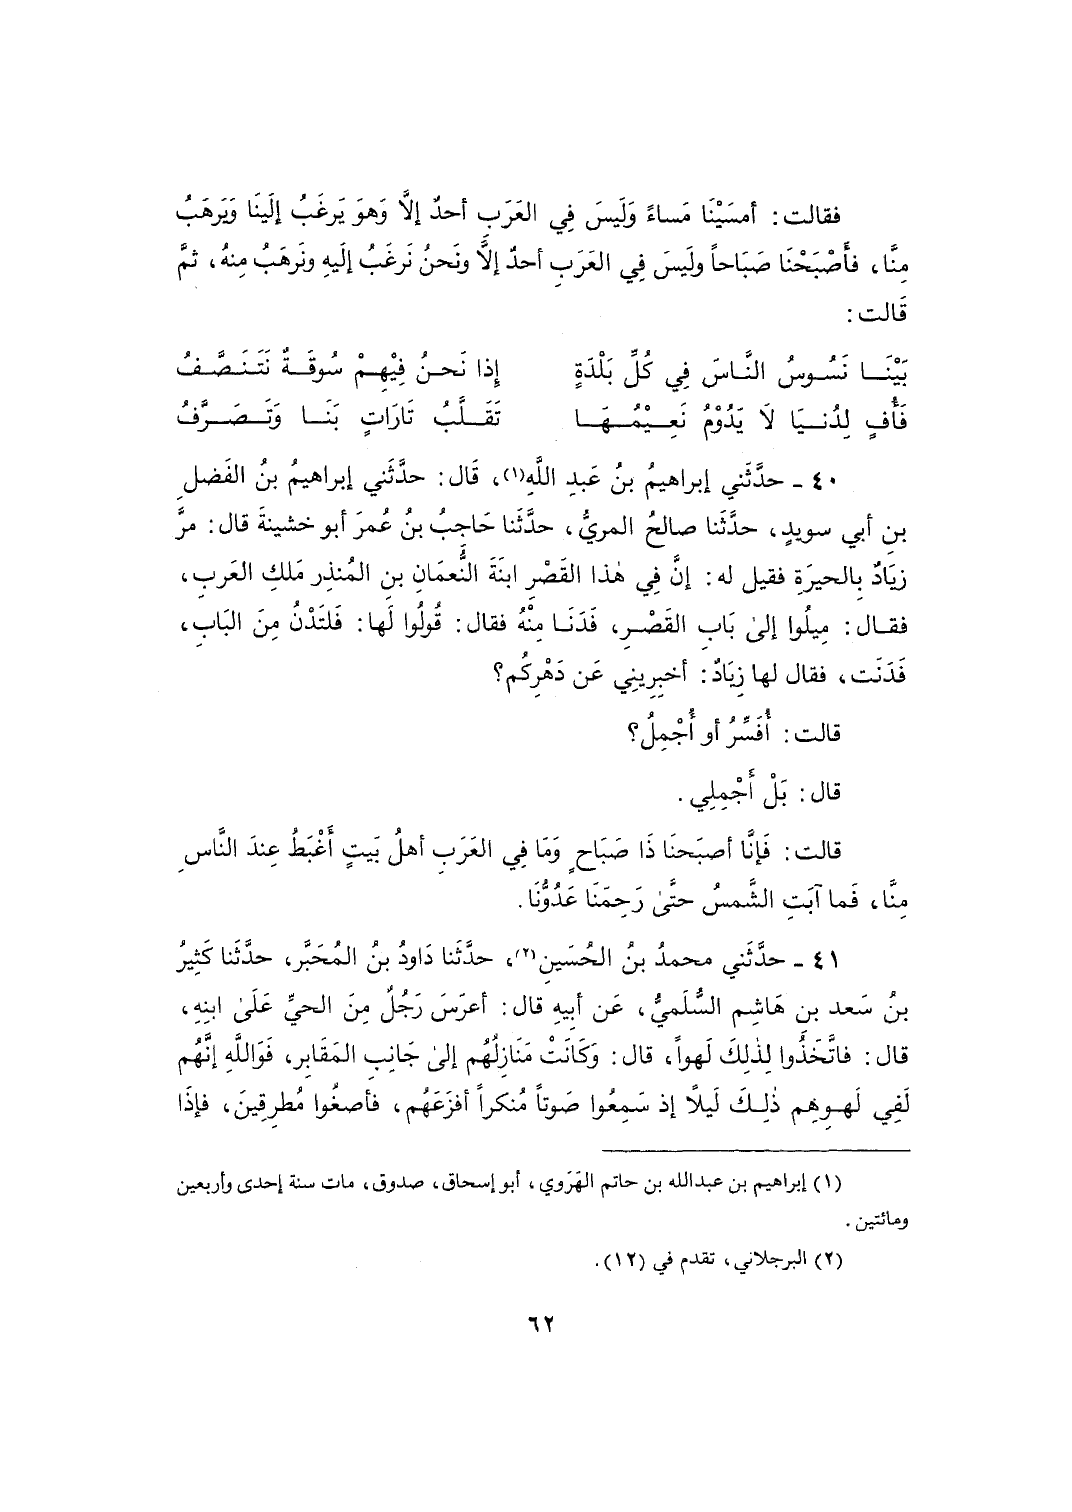 فقالت: أمسَيْنَا مَساءً وَلَيسَ فِي العَرَبِ أحدٌ إلاَّ وَهوَ يَرغَبُ إلَينَا وَيَرهَبُ
مِنَّا، فأَصْبَحْنَا صَبَاحاً ولَيسَ فِي العَرَبِ أحدٌ إلاَّ ونَحنُ نَرغَبُ إلَيهِ ونَرهَبُ مِنهُ، ثمَّ
قَالت:
بَيْنَــا نَسُـوسُ النَّـاسَ فِي كُلِّ بَلْدَةٍ إذا نَحـنُ فِيْهِـمْ سُوقَـةٌ نَتَنَصَّـفُ
فَأُفٍ لِدُنـيَا لَا يَدُوْمُ نَعِـيْمُـهَـا تَقَـلَّبُ تَارَاتٍ بَنَـا وَتَـصَـرَّفُ
٤٠ ـ حدَّثَني إبراهيمُ بنُ عَبدِ اللَّهِ(١)، قَال: حدَّثَني إبراهيمُ بنُ الفَضلِ
بنِ أبي سويدٍ، حدَّثَنا صالحُ المريُّ، حدَّثَنا حَاجبُ بنُ عُمرَ أبو خشينةَ قال: مرَّ
زيَادٌ بِالحيرَةِ فقيل له: إنَّ في هٰذا القَصْرِ ابنَةَ النُّعمَانِ بنِ المُنذِرِ مَلكِ العَربِ،
فقـال: مِيلُوا إلىٰ بَابِ القَصْـرِ، فَدَنَـا مِنْهُ فقال: قُولُوا لَها: فَلتَدْنُ مِنَ البَابِ،
فَدَنَت، فقال لها زِيَادٌ: أخبِرِينِي عَن دَهْرِكُم؟
قالت: أُفَسِّرُ أو أُجْمِلُ؟
قال: بَلْ أَجْمِلِي.
قالت: فَإنَّا أصبَحنَا ذَا صَبَاحٍ وَمَا فِي العَرَبِ أهلُ بَيتٍ أَغْبَطُ عِندَ النَّاسِ
مِنَّا، فَما آبَتِ الشَّمسُ حتَّىٰ رَحِمَنَا عَدُوُّنَا.
٤١ ـ حدَّثَني محمدُ بنُ الحُسَينِ(٢)، حدَّثَنا دَاودُ بنُ المُحَبَّرِ، حدَّثَنا كَثِيرُ
بنُ سَعد بنِ هَاشِمِ السُّلَميُّ، عَن أبيهِ قال: أعرَسَ رَجُلٌ مِنَ الحيِّ عَلَىٰ ابنِهِ،
قال: فاتَّخَذُوا لِذٰلِكَ لَهواً، قال: وَكَانَتْ مَنَازِلُهُم إلىٰ جَانِبِ المَقَابرِ، فَوَاللَّهِ إنَّهُم
لَفِي لَهـوِهِم ذٰلِـكَ لَيلاً إذ سَمِعُوا صَوتاً مُنكراً أفزَعَهُم، فأصغُوا مُطرِقِينَ، فإذَا
(١) إبراهيم بن عبدالله بن حاتم الهَرَوي، أبو إسحاق، صدوق، مات سنة إحدى وأربعين
ومائتين.
(٢) البرجلاني، تقدم في (١٢).
٦٢